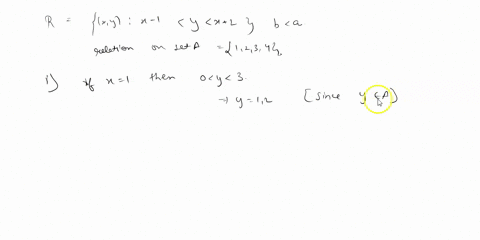 R = {(x,y) : x-1 < y < x+2} b<a
relation on set A = {1,2,3,4}.
1) if x=1 then 0<y<3.
→ y=1,2 [since y ∈ A)